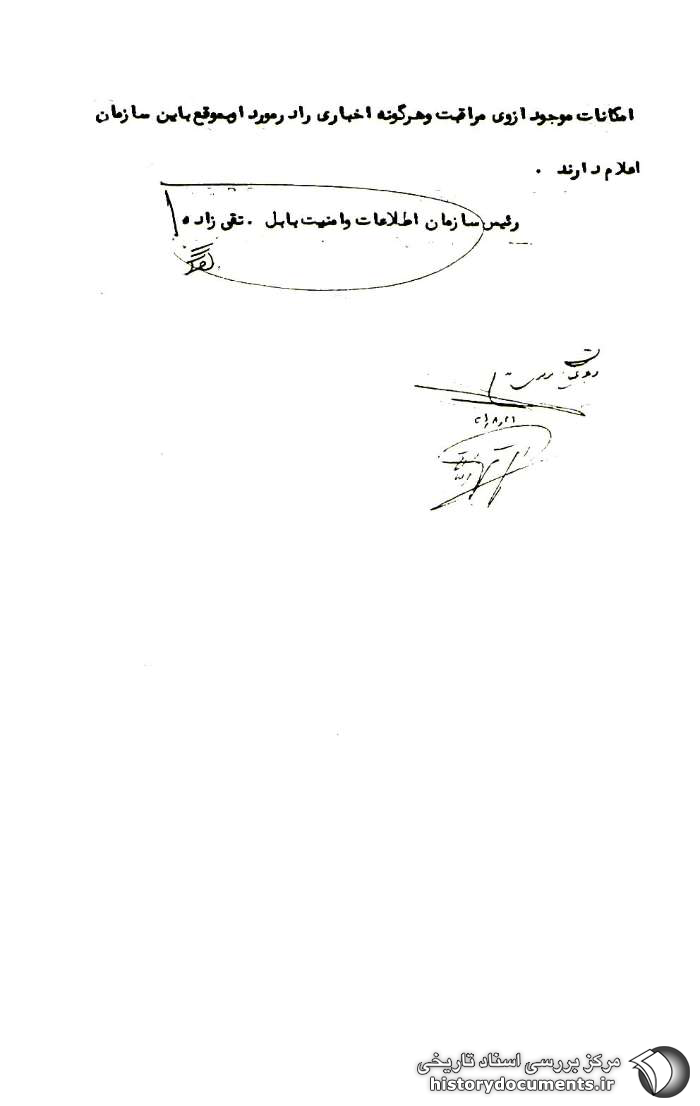 امکانات موجود ازوی مراقبت وهرگونه اخباری رادرمورد اوبموقع باین سازمان
اعلام دارند .
رئیس سازمان اطلاعات وامنیت بابل . تقی زاده
مرکز بررسی اسناد تاریخی
historydocuments.ir